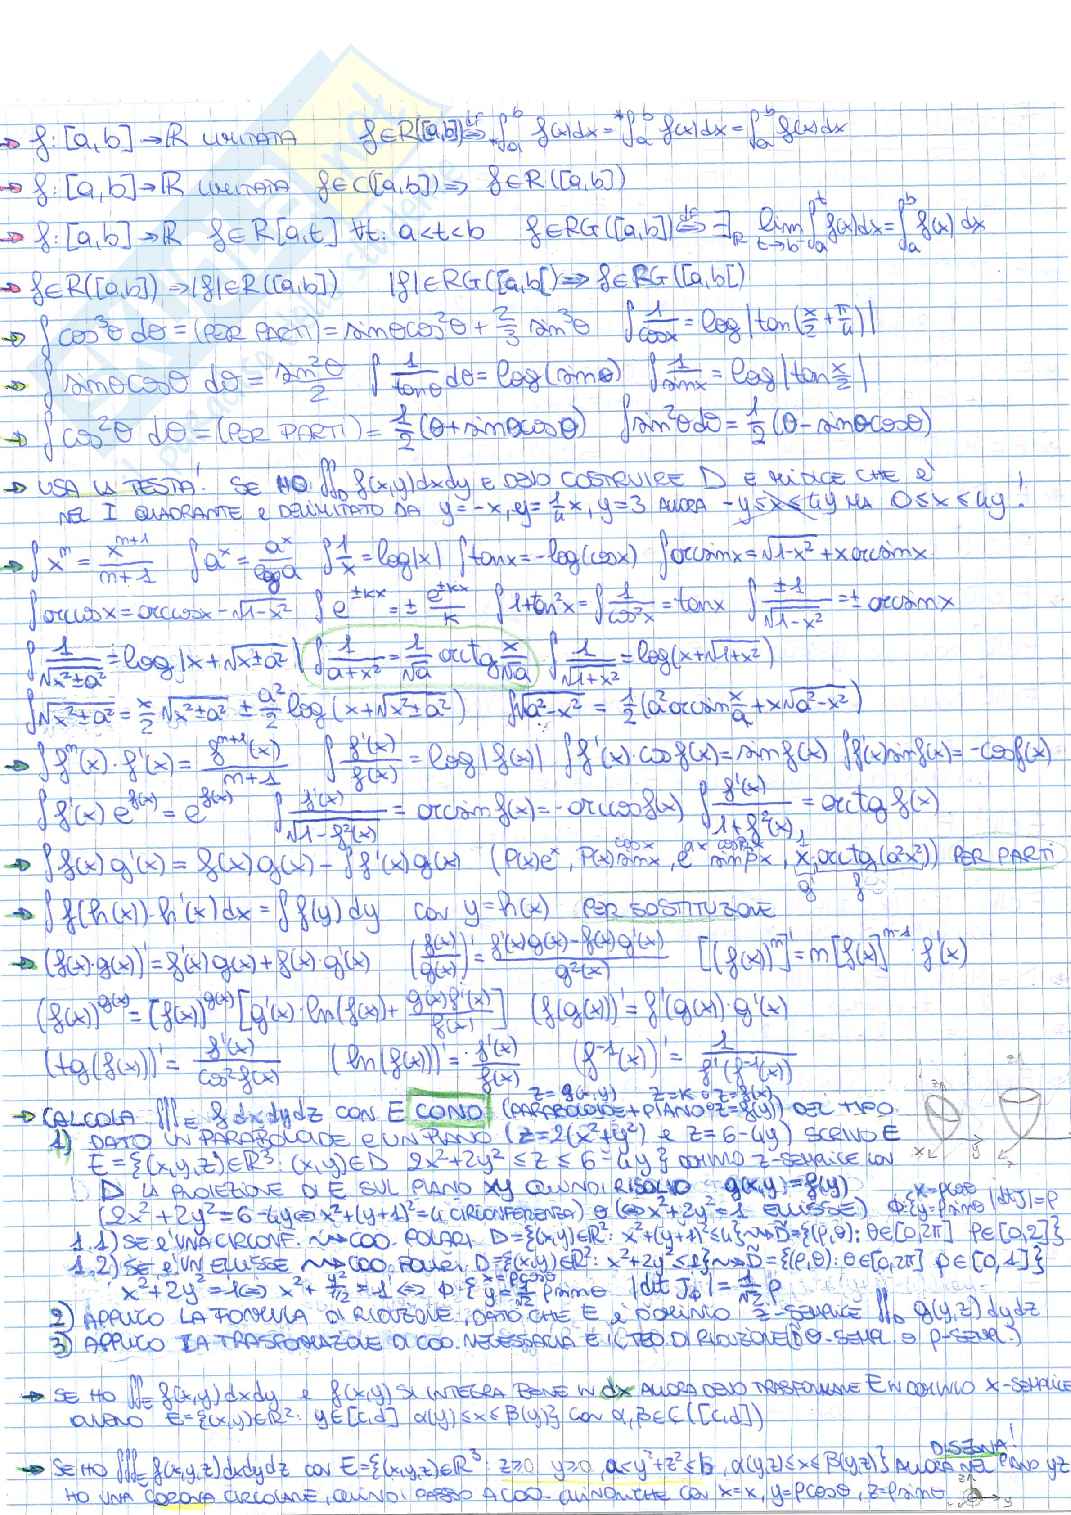 → f: [a,b] → ℝ LIMITATA f∈R([a,b]) ⇔(df) *∫_a^b f(x)dx = *∫_a^b f(x)dx = ∫_a^b f(x)dx
→ f: [a,b] → ℝ LIMITATA f∈C([a,b]) ⇒ f∈R([a,b])
→ f: [a,b] → ℝ f∈R[a,t] ∀t: a<t<b f∈RG([a,b[) ⇔(df) ∃_ℝ lim_{t→b⁻} ∫_a^t f(x)dx = ∫_a^b f(x)dx
→ f∈R([a,b]) ⇒ |f|∈R([a,b]) |f|∈RG([a,b[) ⇒ f∈RG([a,b[)
→ ∫cos³θ dθ = (PER PARTI) = sinθcos²θ + 2/3 sin³θ ∫1/cosx = log|tan(x/2 + π/4)|
→ ∫sinθcosθ dθ = sin²θ/2 ∫1/tanθ dθ = log(sinθ) ∫1/sinx = log|tan x/2|
→ ∫cos²θ dθ = (PER PARTI) = 1/2(θ+sinθcosθ) ∫sin²θdθ = 1/2(θ-sinθcosθ)
→ USA LA TESTA! SE HO ∬_D f(x,y)dxdy E DEVO COSTRUIRE D E MI DICE CHE È
NEL I QUADRANTE E DELIMITATO DA y=-x, y=1/4x, y=3 ALLORA -y≤x≤4y MA 0≤x≤4y!
→ ∫x^m = x^{m+1}/(m+1) ∫a^x = a^x/log a ∫1/x = log|x| ∫tanx = -log(cosx) ∫arcsinx = √(1-x²) + xarcsinx
∫arccosx = arccosx - √(1-x²) ∫e^{±kx} = ± e^{±kx}/k ∫1+tan²x = ∫1/cos²x = tanx ∫±1/√(1-x²) = ± arcsinx
∫1/√(x²±a²) = log|x+√(x±a²)| ∫1/(a+x²) = 1/√a arctg x/√a ∫1/√(1+x²) = log(x+√(1+x²))
∫√(x²±a²) = x/2 √(x²±a²) ± a²/2 log(x+√(x²±a²)) ∫√(a²-x²) = 1/2(a²arcsin x/a + x√(a²-x²))
→ ∫f^m(x)·f'(x) = f^{m+1}(x)/(m+1) ∫f'(x)/f(x) = log|f(x)| ∫f'(x)·cosf(x) = sinf(x) ∫f'(x)sinf(x) = -cosf(x)
∫f'(x)e^{f(x)} = e^{f(x)} ∫f'(x)/√(1-f²(x)) = arcsinf(x) = -arccosf(x) ∫f'(x)/(1+f²(x)) = arctgf(x)
→ ∫f(x)g'(x) = f(x)g(x) - ∫f'(x)g(x) (P(x)e^x, P(x) cosx sinx, e^{αx} cosβx sinβx, x arctg(a²x²)) PER PARTI
g' f
→ ∫f(h(x))·h'(x)dx = ∫f(y)dy CON y=h(x) PER SOSTITUZIONE
→ (f(x)·g(x))' = f'(x)g(x)+f(x)·g'(x) (f(x)/g(x))' = (f'(x)g(x)-f(x)g'(x))/g²(x) [(f(x))^m]' = m[f(x)]^{m-1}·f'(x)
(f(x))^{g(x)} = [f(x)]^{g(x)} [g'(x)·ln(f(x)) + g(x)f'(x)/f(x)] (f(g(x)))' = f'(g(x))·g'(x)
(tg(f(x)))' = f'(x)/cos²f(x) (ln(f(x)))' = f'(x)/f(x) (f⁻¹(x))' = 1/f'(f⁻¹(x))
z=g(x,y) z=k o z=f(x)
→ CALCOLA ∭_E f dxdydz CON E CONO (PARABOLOIDE+PIANO o z=f(y)) DEL TIPO
1) DATO UN PARABOLOIDE E UN PIANO (z=2(x²+y²) e z=6-4y) SCRIVO E
E={(x,y,z)∈ℝ³: (x,y)∈D 2x²+2y² ≤ z ≤ 6-4y} DOMINIO z-SEMPLICE CON
D LA PROIEZIONE DI E SUL PIANO XY QUINDI RISOLVO g(x,y)=f(y)
(2x²+2y²=6-4y ⇔ x²+(y+1)²=4 CIRCONFERENZA) o (⇔ x²+2y²=1 ELLISSE) Φ{x=ρcosθ y=ρsinθ |det J_Φ|=ρ
1.1) SE È UNA CIRCONF. ⇝ COO. POLARI D={(x,y)∈ℝ²: x²+(y+1)²≤4} ⇝ D̃={(ρ,θ): θ∈[0,2π] ρ∈[0,2]}
1.2) SE È UN ELLISSE ⇝ COO. POLARI D={(x,y)∈ℝ²: x²+2y²≤1} ⇝ D̃={(ρ,θ): θ∈[0,2π] ρ∈[0,1]}
x²+2y²=1 ⇔ x²+y²/(1/2)=1 ⇔ Φ{x=ρcosθ y=1/√2 ρsinθ |det J_Φ|=1/√2 ρ
2) APPLICO LA FORMULA DI RIDUZIONE, DATO CHE E È DOMINIO z-SEMPLICE ∬_D g(y,z)dydz
3) APPLICO LA TRASFORMAZIONE DI COO. NECESSARIA E IL TEO. DI RIDUZIONE (D θ-SEMPL o ρ-SEMPL.)
→ SE HO ∬_E f(x,y)dxdy e f(x,y) SI INTEGRA BENE IN dx ALLORA DEVO TRASFORMARE E IN DOMINIO X-SEMPLICE
OVVERO E={(x,y)∈ℝ²: y∈[c,d] α(y)≤x≤β(y)} CON α,β∈C([c,d])
DISEGNA!
→ SE HO ∭_E f(x,y,z)dxdydz CON E={(x,y,z)∈ℝ³: z≥0, y≥0, a<y²+z²≤b, α(y,z)≤x≤β(y,z)} ALLORA NEL PIANO YZ
HO UNA CORONA CIRCOLARE, QUINDI PASSO A COO. CILINDRICHE CON x=x, y=ρcosθ, z=ρsinθ